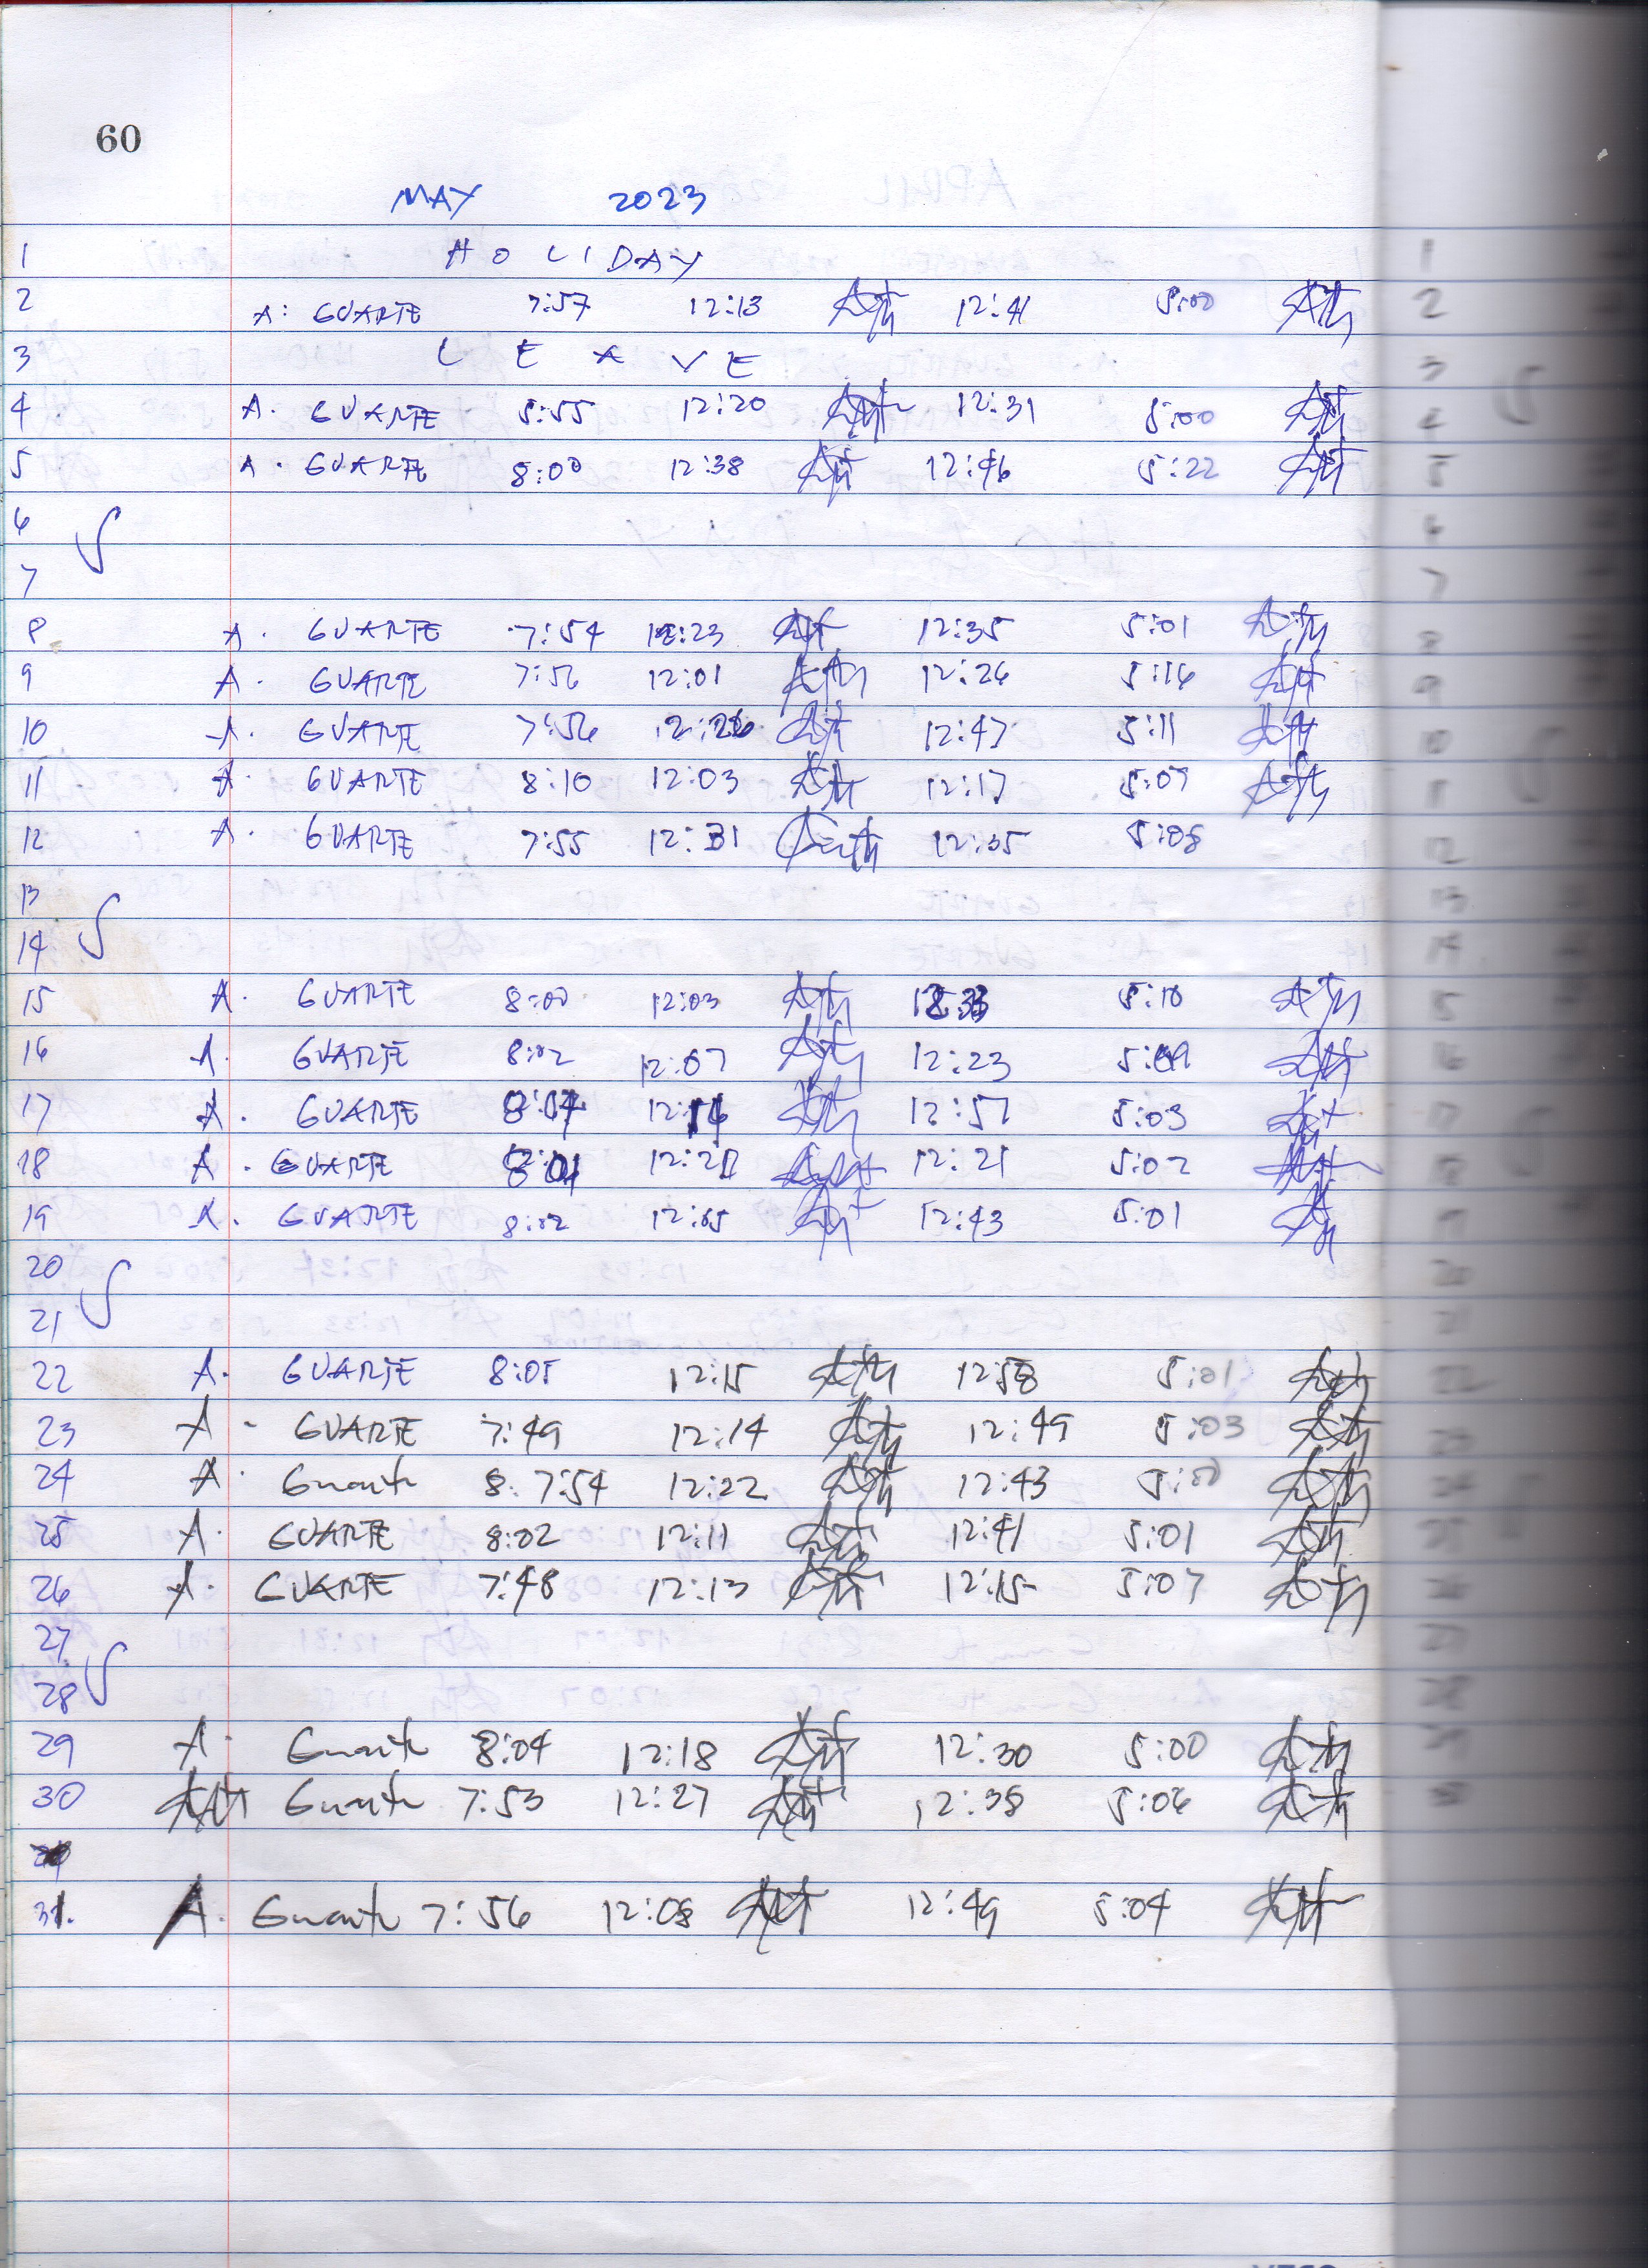 60
MAY 2023
1 HOLIDAY
2 A. GUARTE 7:57 12:13 12:41 5:00
3 LEAVE
4 A. GUARTE 5:55 12:20 12:31 5:00
5 A. GUARTE 8:00 12:38 12:46 5:22
6
7
8 A. GUARTE 7:54 12:23 12:35 5:01
9 A. GUARTE 7:56 12:01 12:26 5:16
10 A. GUARTE 7:56 12:26 12:47 5:11
11 A. GUARTE 8:10 12:03 12:17 5:07
12 A. GUARTE 7:55 12:31 12:35 5:08
13
14
15 A. GUARTE 8:00 12:03 12:33 5:10
16 A. GUARTE 8:02 12:07 12:23 5:09
17 A. GUARTE 12:57 5:03
18 A. GUARTE 8:01 12:21 5:02
19 A. GUARTE 8:02 12:43 5:01
20
21
22 A. GUARTE 8:05 12:15 12:58 5:01
23 A. GUARTE 7:49 12:14 12:49 5:03
24 A. Guarte 8. 7:54 12:22 12:43
25 A. GUARTE 8:02 12:11 12:41 5:01
26 A. GUARTE 7:48 12:13 12:15 5:07
27
28
29 A. Guarte 8:04 12:18 12:30 5:00
30 Guarte 7:53 12:27 12:38 5:06
31. A. Guarte 7:56 12:08 12:49 5:04